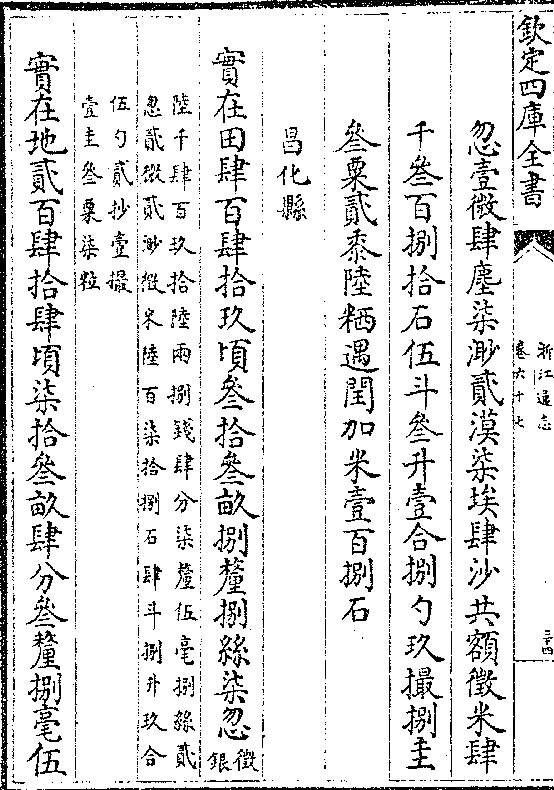 欽定四庫全書
浙江通志
卷六十七
三十四
忽壹微肆塵柒渺貳漠柒埃肆沙共額徵米肆
千叁百捌拾石伍斗叁升壹合捌勺玖撮捌圭
叁粟貳黍陸粞遇閏加米壹百捌石
昌化縣
實在田肆百肆拾玖頃叁拾叁畝捌釐捌絲柒忽
徵銀
陸千肆百玖拾陸兩捌錢肆分柒釐伍毫捌絲貳
忽貳微貳渺徵米陸百柒拾捌石肆斗捌升玖合
伍勺貳抄壹撮
壹圭叁粟柒粒
實在地貳百肆拾肆頃柒拾叁畝肆分叁釐捌毫伍